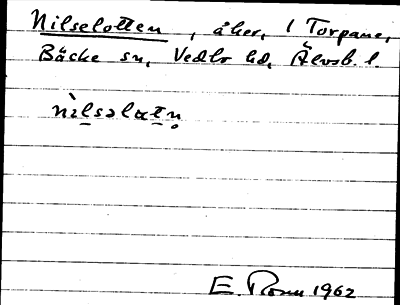 Nilselotten, åker, 1 Torpane,
Bäcke sn, Vedbo hd, Älvsb. l.
nìlsəlɑtn̥
E. Ronn 1962